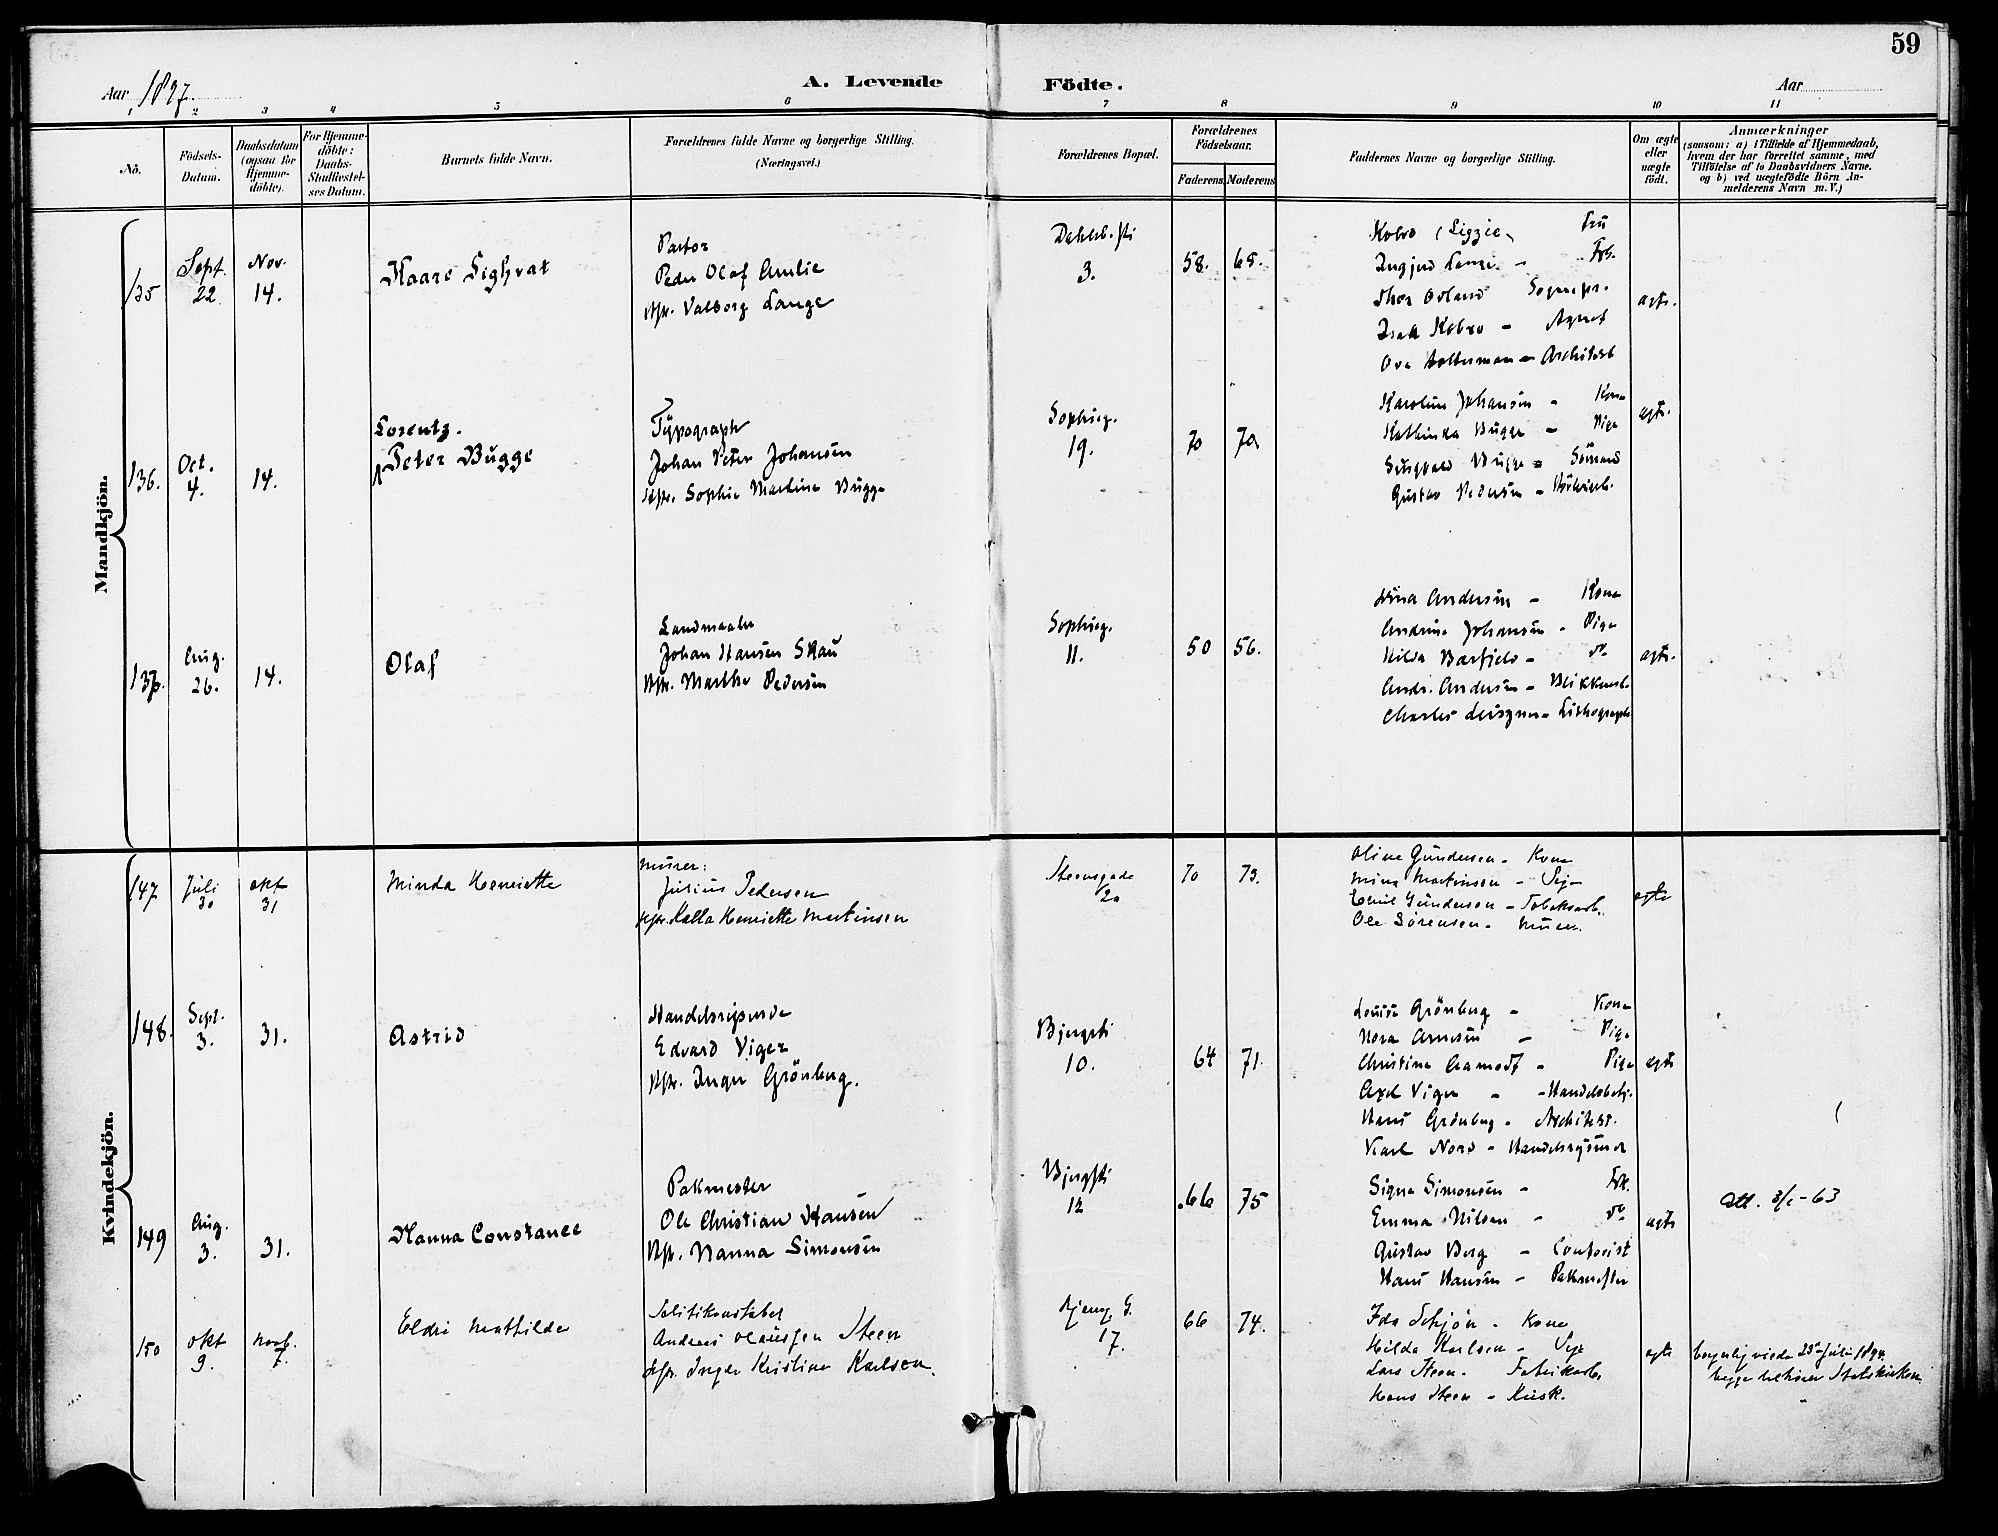 59
A. Levende Födte.
Aar 1897.
Aar
1 2 3 4 5 6 7 8 9 10 11
No.
Födsels-Datum.
Daabsdatum (ogsaa for Hjemme-döbte).
For Hjemme-döbte: Daabs-Stadfæstel-ses Datum.
Barnets fulde Navn.
Forældrenes fulde Navne og borgerlige Stilling.
(Næringsvei.)
Forældrenes Bopæl.
Forældrenes Födselsaar.
Faderens Moderens
Faddernes Navne og borgerlige Stilling.
Om ægte eller uægte födt.
Anmærkninger
(saasom: a) i Tilfælde af Hjemmedaab,
hvem der har forrettet samme, med
Tilföielse af to Daabsvidners Navne,
og b) ved uægtefödte Börn An-
melderens Navn m. V.)
Mandkjön.
135
Sept. 22
Nov. 14.
Kaare Sighvat
Pastor
Peder Olaf Amlie
Hstr. Valborg Lange
3.
58. 68.
Kobro (Lizzie) Fru
Ingjerd Lange - Frk.
Thor Odland Sognepr.
Isak Kobro - Agent
Ove - Architekt
ægte.
136.
Oct. 4.
14.
Lorentz.
Peter Bugge
Typograph
Johan Peter Johansen
Hstr. Sophie Martine Bugge
Sophieg.
19.
70 70
Karoline Johansen - Kone
Kathinka Bugge - Pige
Bugge - Sömand
Gustav Pedersen -
ægte.
137.
Aug. 26.
14.
Olaf
Landmaaler
Johan Hansen Skau
Hstr. Marthe Pedersen
Sophieg.
11.
50 56.
Andersen - Kone
Andrine Johansen - Pige
Hilda Barfjeld - do
Andr. Andersen - Blikkensl.
Charles - Lithograph
ægte.
Kvindekjön.
147
Juli 30
okt 31
Minda Henriette
Murer:
Julius Pedersen
Kalla Henriette Martinsen
Steensgade
2a
70 73.
Oline Gundersen - Kone
Mina Martinsen - Pige
Emil Gundersen - Tobaksarb.
Ole Sörensen - Murer.
ægte
148.
Sept. 3.
31.
Astrid
Handelsreisende
Edvard Viger
Hstr. Inger Grönberg.
Bjergsti
10.
64 71.
Louise Grönberg - Kone
Nora Arnesen - Pige
Christine Aamodt - Pige
Axel Viger - Handelsbetj.
Hans Grönberg - Architekt.
Karl Nord - Handelsreisende
ægte
149
Aug. 3.
31.
Hanna Constance
Pakmester
Ole Christian Hansen
Hstr. Nanna Simonsen
Bjergsti
12
66 75
Signe Simonsen - Frk.
Emma Nilsen - do
Gustav Berg - Contorist
Hans Hansen - Pakmester
ægte
Att. 3/1-63
150
okt 9.
novb. 7.
Eldri Mathilde
Politikonstabel
Andreas Olaussen Steen
Hstr. Inger Kristine Karlsen.
17.
66 74.
Ida Schjön - Kone
Hilda Karlsen - Pige
Lars Steen - Fabrikarb.
Hans Steen - Kusk.
ægte
borgerlig viede 29de Juli 1894.
begge tilhører Statskirken.